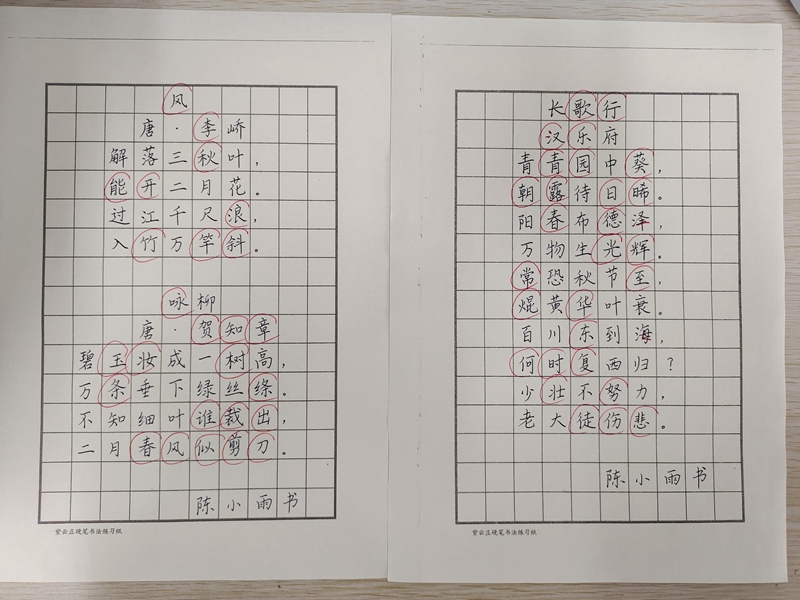 风
唐·李峤
解落三秋叶，
能开二月花。
过江千尺浪，
入竹万竿斜。
咏柳
唐·贺知章
碧玉妆成一树高，
万条垂下绿丝绦。
不知细叶谁裁出，
二月春风似剪刀。
陈小雨书
紫云庄硬笔书法练习纸
长歌行
汉乐府
青青园中葵，
朝露待日晞。
阳春布德泽，
万物生光辉。
常恐秋节至，
焜黄华叶衰。
百川东到海，
何时复西归？
少壮不努力，
老大徒伤悲。
陈小雨书
紫云庄硬笔书法练习纸